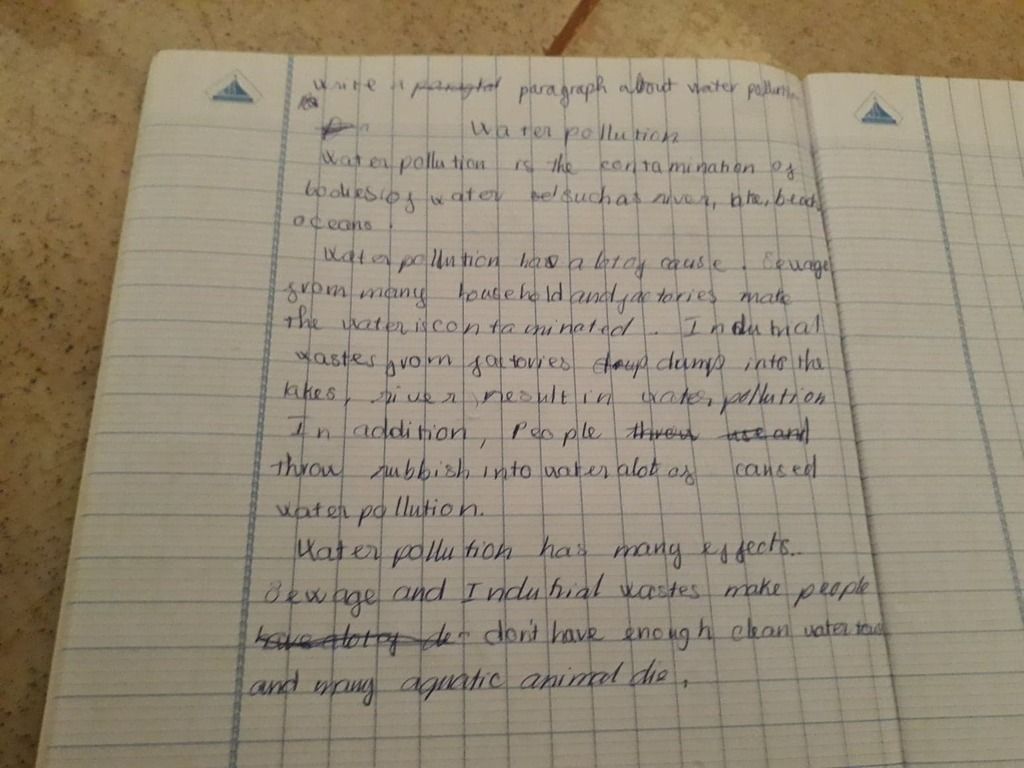 write a paragraph about water pollution
Water pollution
Water pollution is the contamination of
bodies of water such as river, lake, beach,
oceans.
Water pollution has a lot of cause. Sewage
from many household and factories make
the water is contaminated. Indutrial
wastes from factories dump into the
lakes, river result in water pollution
In addition, People threw use and
throw rubbish into water alot of caused
water pollution.
Water pollution has many effects.
Sewage and Indutrial wastes make people
have alot of de don't have enough clean water
and many aquatic animal die.